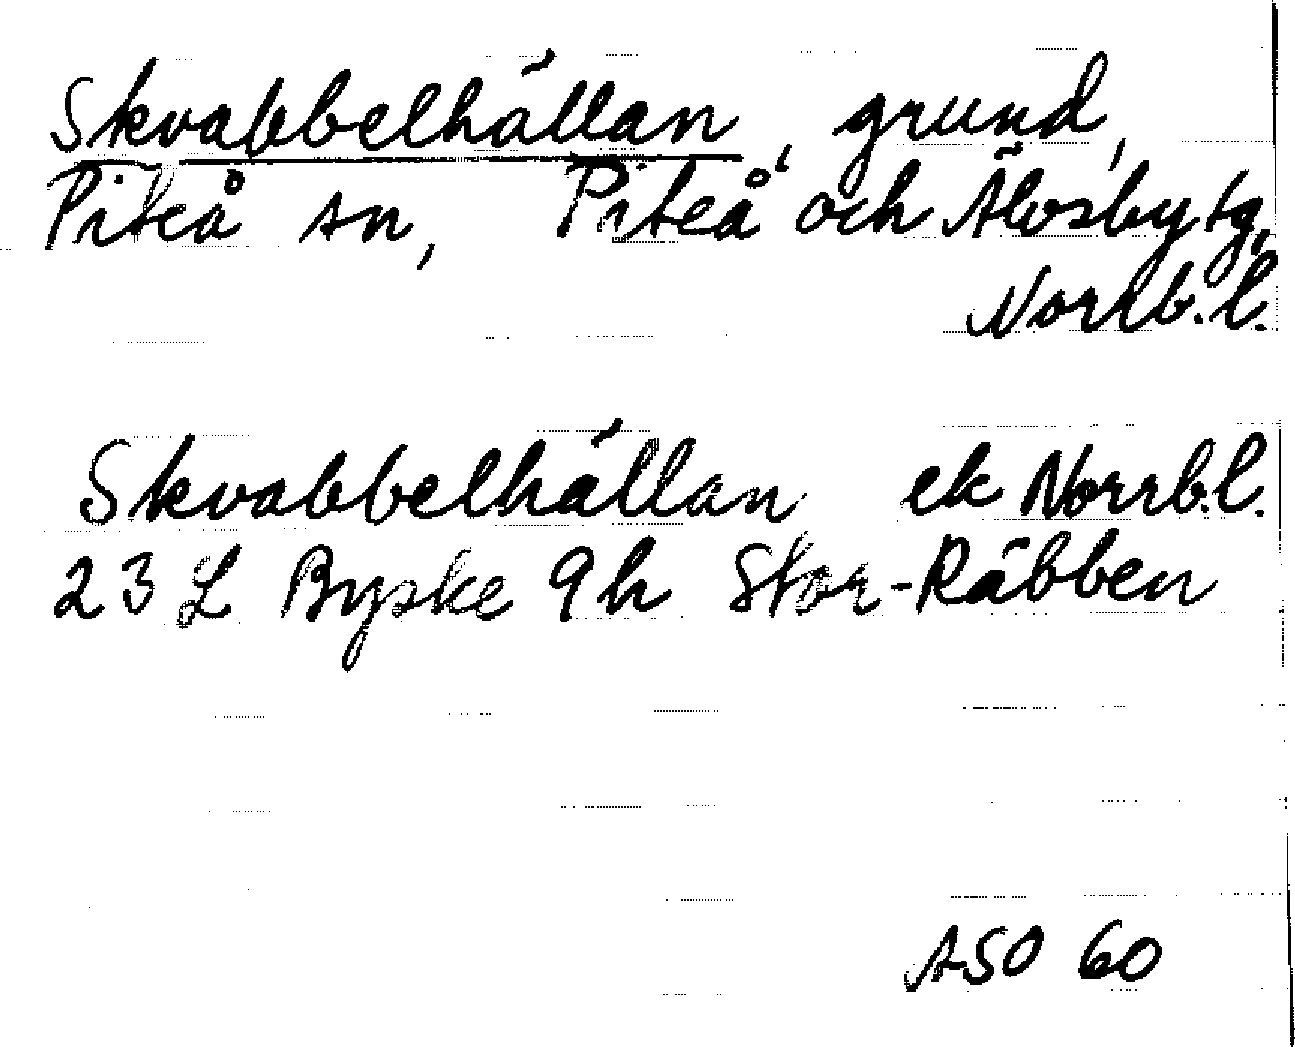 Skvabbelhällan, grund,
Piteå sn, Piteå och Älvsby tg,
Norrb.l.
Skvabbelhällan ek Norrb.l.
23 L Byske 9h Stor-Räbben
ASO 60